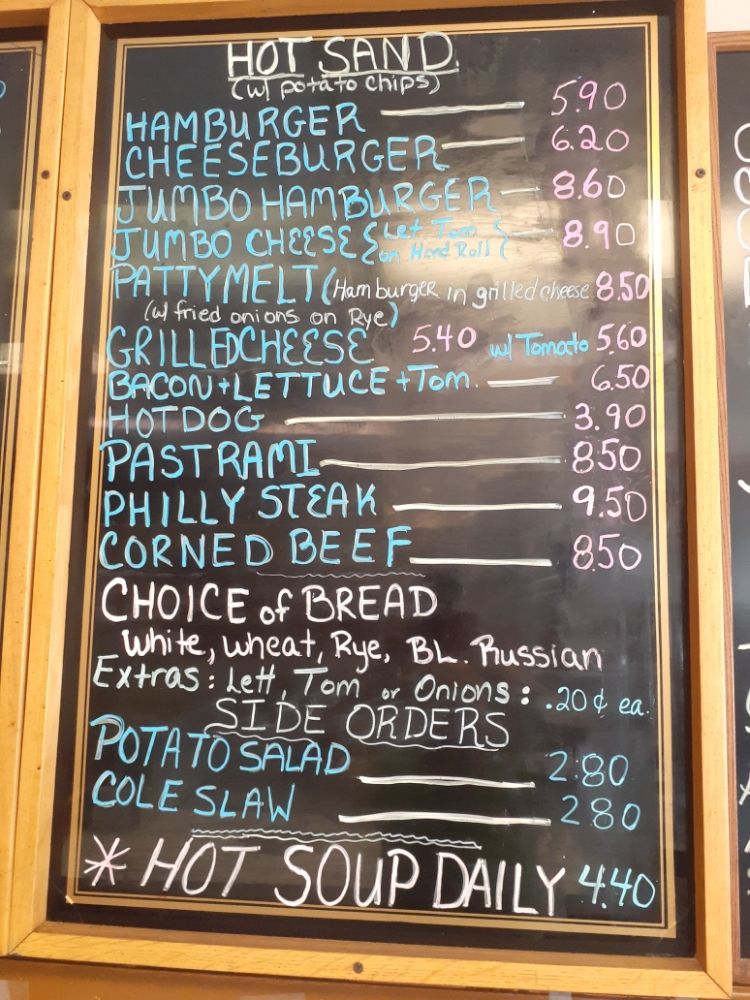 HOT SAND.
(w/ potato chips)
HAMBURGER 5.90
CHEESEBURGER 6.20
JUMBO HAMBURGER 8.60
JUMBO CHEESE { Let Tom on Hard Roll } 8.90
PATTYMELT (Hamburger in grilled cheese 8.50
(w/ fried onions on Rye)
GRILLEDCHEESE 5.40 w/ Tomato 5.60
BACON + LETTUCE + Tom. 6.50
HOTDOG 3.90
PASTRAMI 850
PHILLY STEAK 9.50
CORNED BEEF 850
CHOICE of BREAD
White, Wheat, Rye, BL. Russian
Extras: Lett, Tom or Onions: .20¢ ea.
SIDE ORDERS
POTATO SALAD 2:80
COLE SLAW 280
* HOT SOUP DAILY 4.40